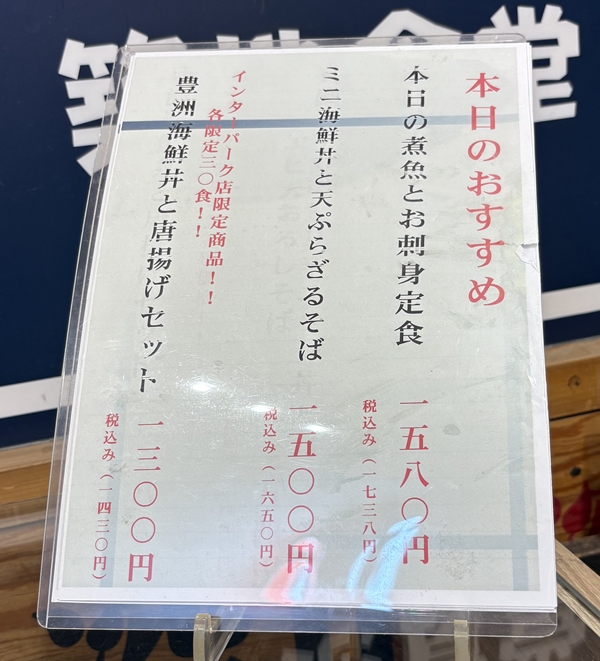 築地食堂
本日のおすすめ
本日の煮魚とお刺身定食
一五八〇円
税込み（一七三八円）
ミニ海鮮丼と天ぷらざるそば
一五〇〇円
税込み（一六五〇円）
インターパーク店限定商品！！
各限定三〇食！！
豊洲海鮮丼と唐揚げセット
一三〇〇円
税込み（一四三〇円）